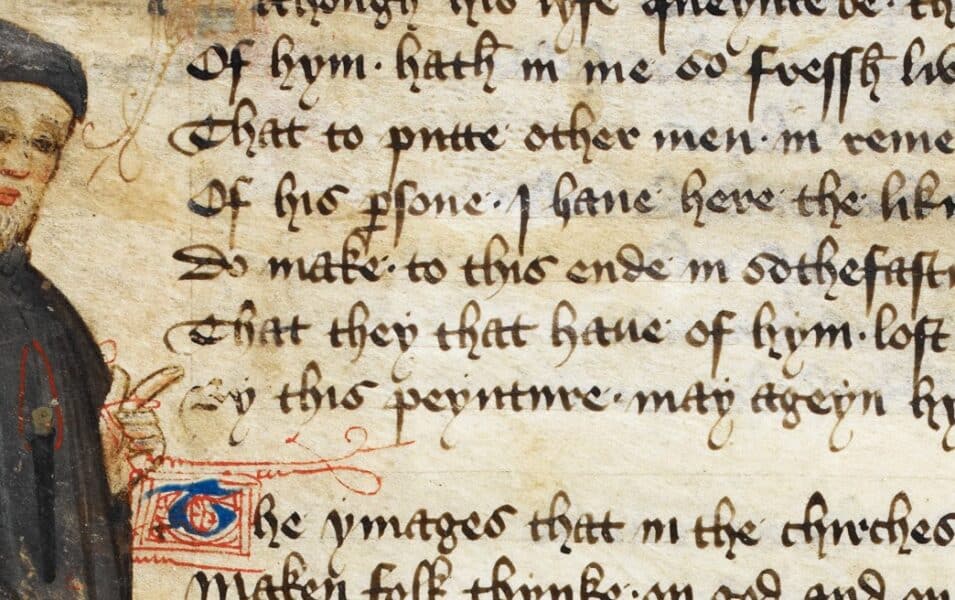 Although his lyfe queynte be· th
Of hym· hath in me so fressh liv
That to putte other men· in reme
Of his psone· I haue here the likn
Do make· to this ende in sothefastn
That they that haue of hym· lost
By this peynture· may ageyn hy
The ymages that in the chirches
Maken folk thynke· on god and on